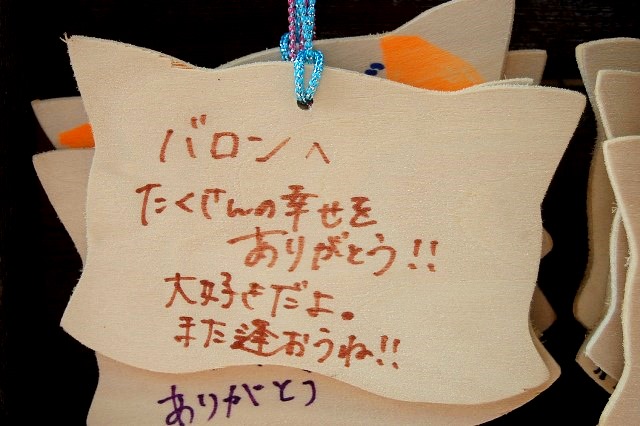 バロンへ
たくさんの幸せを
ありがとう!!
大好きだよ。
また逢おうね!!
ありがとう